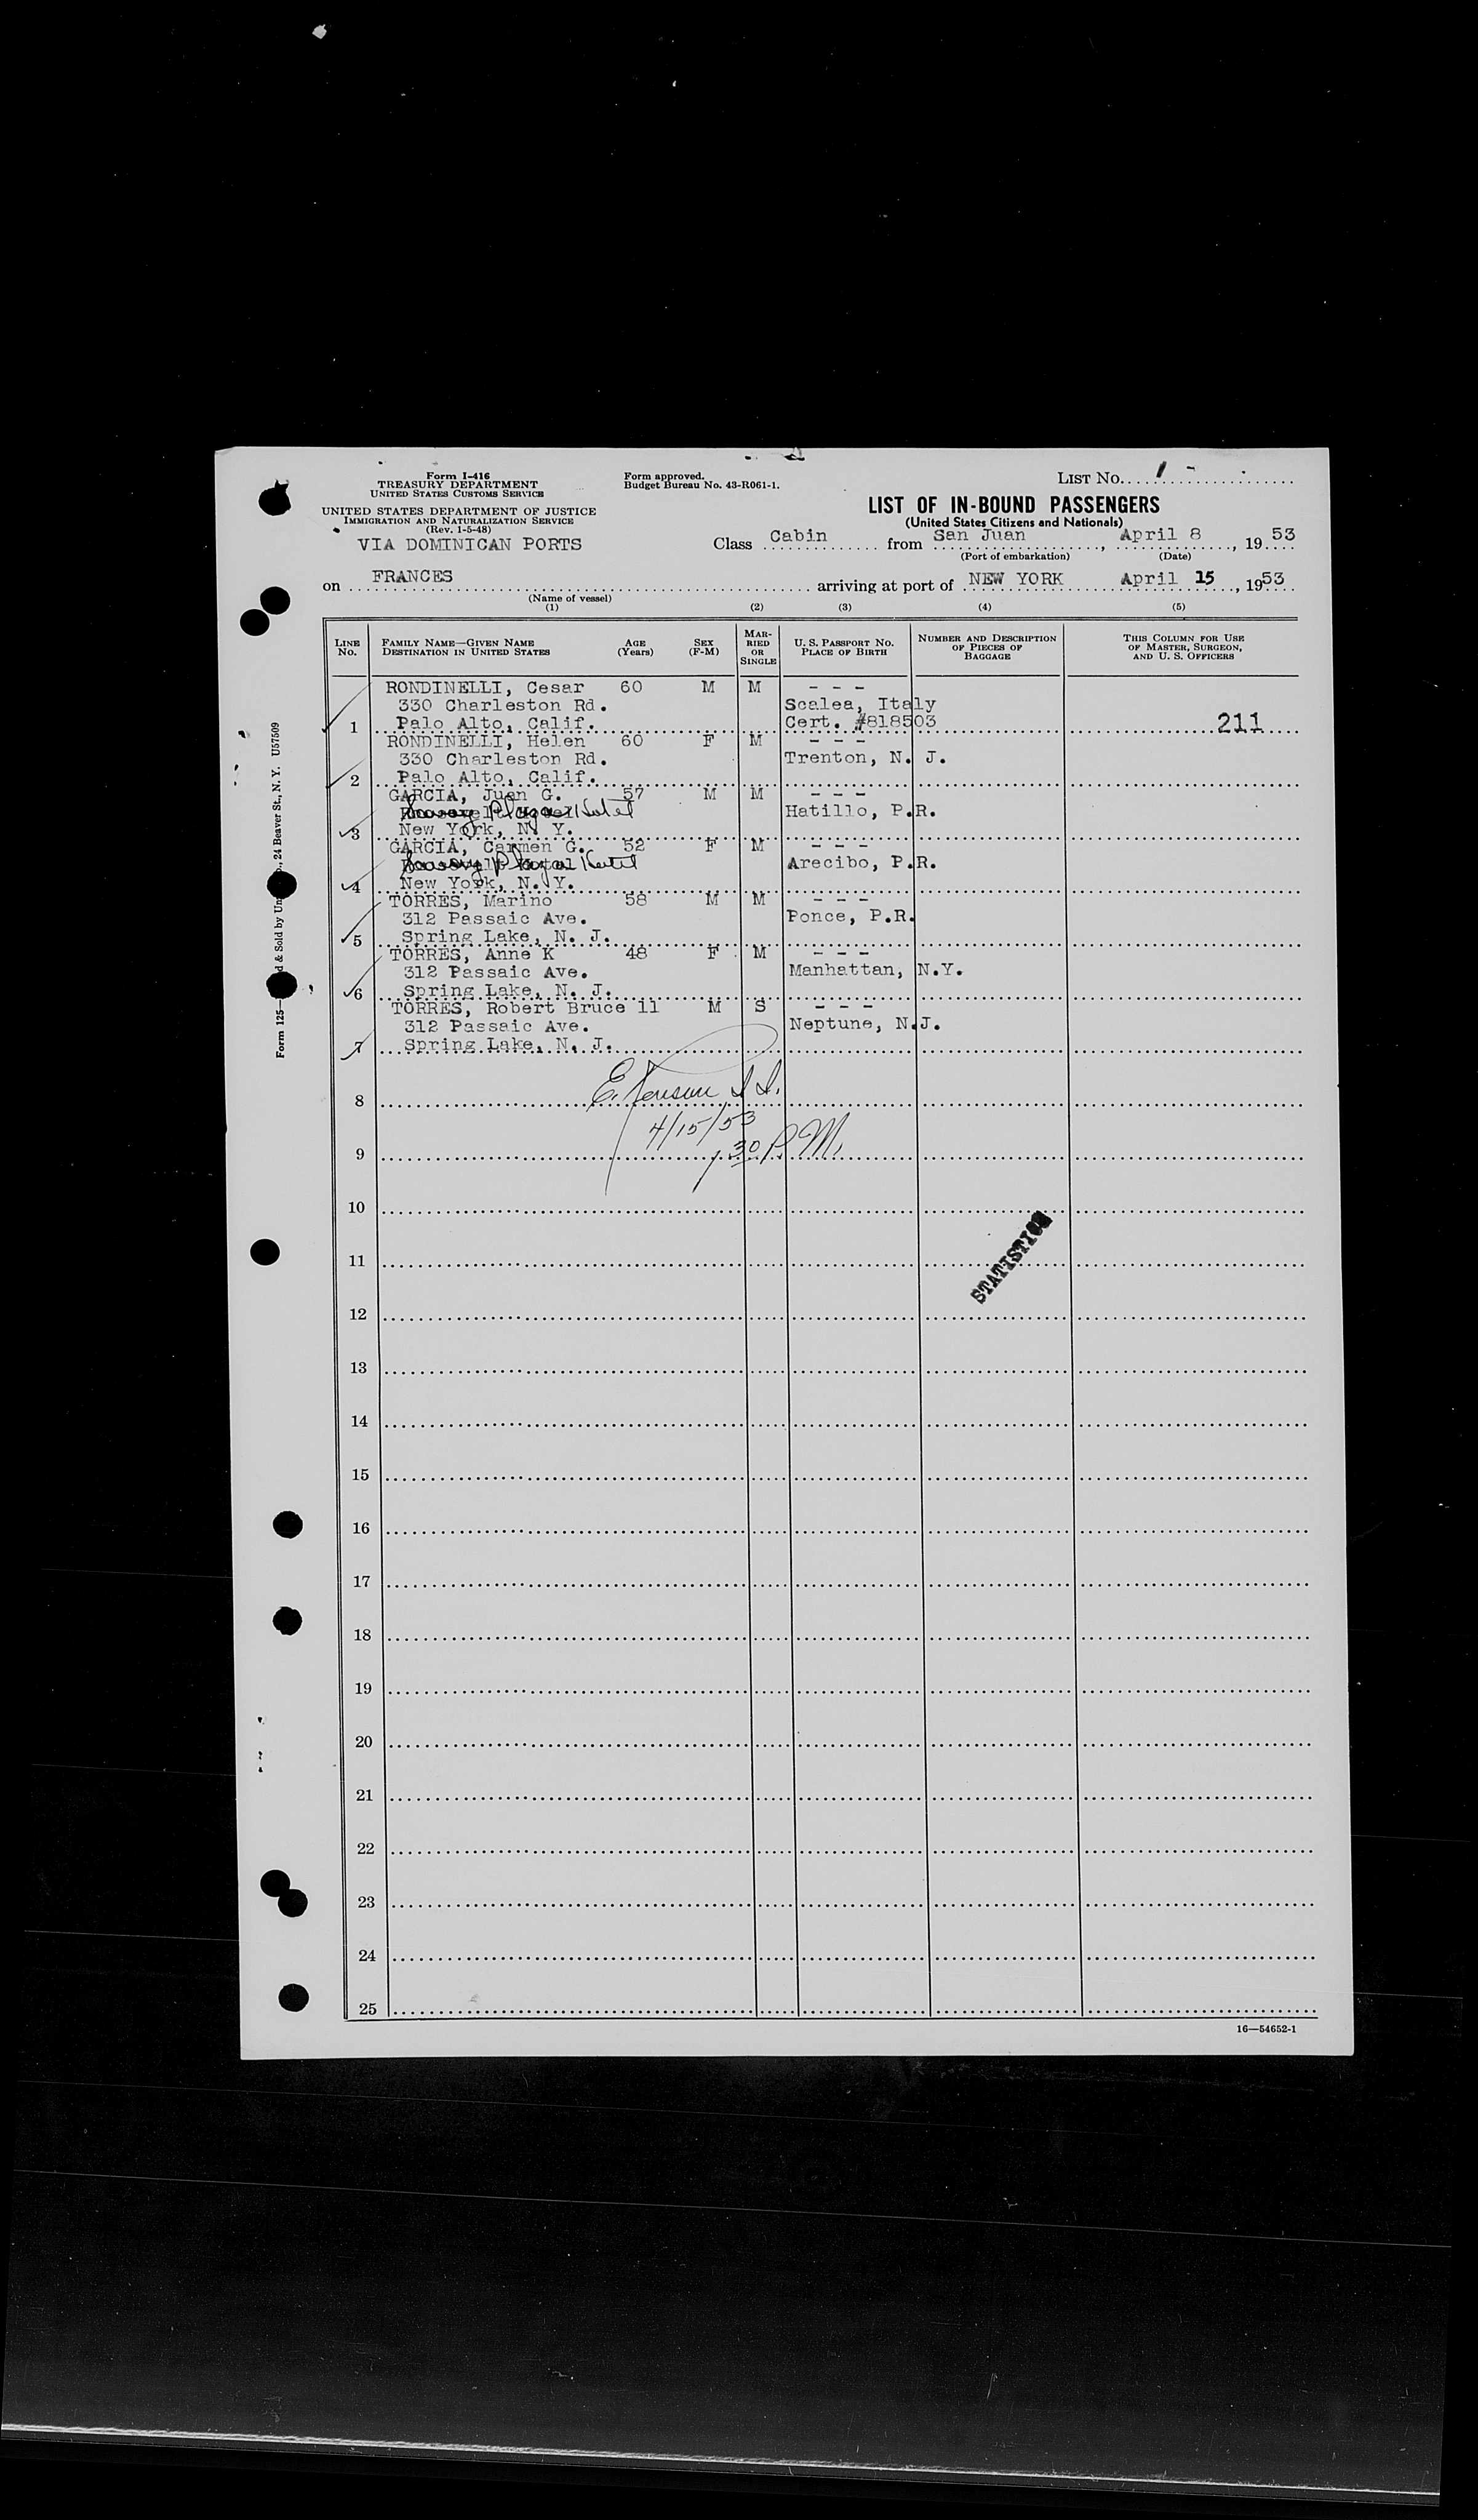 Form I-416
TREASURY DEPARTMENT
UNITED STATES CUSTOMS SERVICE
UNITED STATES DEPARTMENT OF JUSTICE
IMMIGRATION AND NATURALIZATION SERVICE
(Rev. 1-5-48)
Form approved.
Budget Bureau No. 43-R061-1.
LIST No. 1
LIST OF IN-BOUND PASSENGERS
(United States Citizens and Nationals)
VIA DOMINICAN PORTS
Class Cabin from San Juan, April 8, 1953
(Port of embarkation) (Date)
on FRANCES arriving at port of NEW YORK April 15, 1953
(Name of vessel)
(1) (2) (3) (4) (5)
LINE No.
FAMILY NAME—GIVEN NAME
DESTINATION IN UNITED STATES
AGE (Years)
SEX (F-M)
MARRIED OR SINGLE
U. S. PASSPORT NO.
PLACE OF BIRTH
NUMBER AND DESCRIPTION OF PIECES OF BAGGAGE
THIS COLUMN FOR USE OF MASTER, SURGEON, AND U. S. OFFICERS
RONDINELLI, Cesar 60 M M - - -
330 Charleston Rd. Scalea, Italy
1 Palo Alto, Calif. Cert. #818503 211
RONDINELLI, Helen 60 F M - - -
330 Charleston Rd. Trenton, N. J.
2 Palo Alto, Calif.
GARCIA, Juan G. 57 M M - - -
Plaza Hotel Hatillo, P.R.
3 New York, N. Y.
GARCIA, Carmen G. 52 F M - - -
Plaza Hotel Arecibo, P.R.
4 New York, N. Y.
TORRES, Marino 58 M M - - -
312 Passaic Ave. Ponce, P.R.
5 Spring Lake, N. J.
TORRES, Anne K 48 F M - - -
312 Passaic Ave. Manhattan, N.Y.
6 Spring Lake, N. J.
TORRES, Robert Bruce 11 M S - - -
312 Passaic Ave. Neptune, N.J.
7 Spring Lake, N. J.
8
4/15/53
9
30 P.M.
10
STATISTICS
11
12
13
14
15
16
17
18
19
20
21
22
23
24
25
16—54652-1
Form 125— d & Sold by Un ., 24 Beaver St., N. Y. U57509